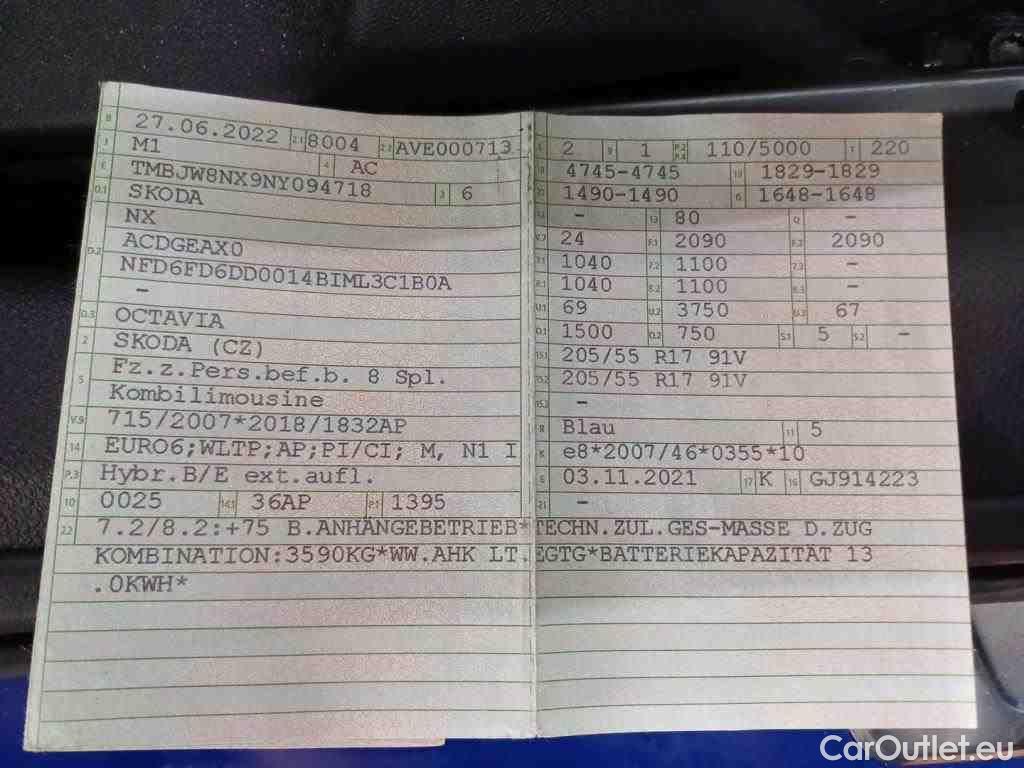 B 27.06.2022 2.1 8004 2.2 AVE000713
J M1 4 AC
E TMBJW8NX9NY094718 3 6
D.1 SKODA
NX
D.2 ACDGEAX0
NFD6FD6DD0014BIML3C1B0A
–
D.3 OCTAVIA
2 SKODA (CZ)
5 Fz.z.Pers.bef.b. 8 Spl.
Kombilimousine
V.9 715/2007*2018/1832AP
14 EURO6;WLTP;AP;PI/CI; M, N1 I
P.3 Hybr.B/E ext.aufl.
10 0025 14.1 36AP P.1 1395
L 2 9 1 P.2 P.4 110/5000 T 220
18 4745-4745 19 1829-1829
20 1490-1490 G 1648-1648
12 – 13 80 Q –
V.7 24 F.1 2090 F.2 2090
7.1 1040 7.2 1100 7.3 –
8.1 1040 8.2 1100 8.3 –
U.1 69 U.2 3750 U.3 67
O.1 1500 O.2 750 S.1 5 S.2 –
15.1 205/55 R17 91V
15.2 205/55 R17 91V
15.3 –
R Blau 11 5
K e8*2007/46*0355*10
6 03.11.2021 17 K 16 GJ914223
21 –
22 7.2/8.2:+75 B.ANHÄNGEBETRIEB*TECHN.ZUL.GES-MASSE D.ZUG
KOMBINATION:3590KG*WW.AHK LT.EGTG*BATTERIEKAPAZITÄT 13
.0KWH*
CarOutlet.eu